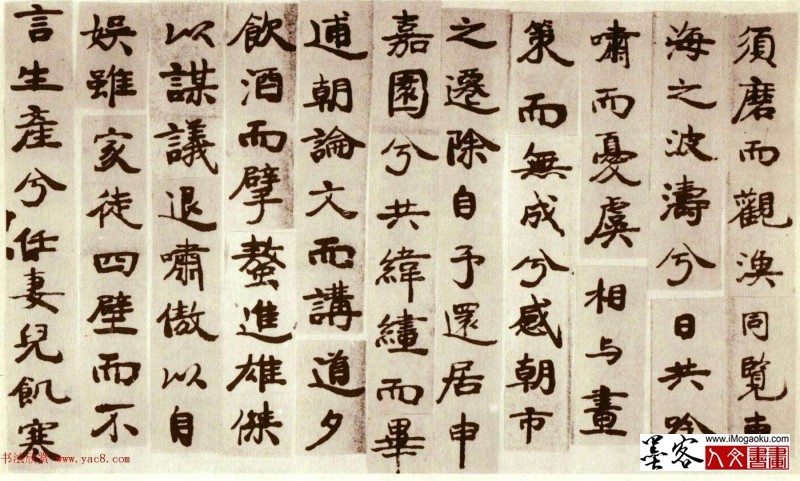 須磨而觀漁同覽東
海之波濤兮日共吟
嘯而憂虞相与畫
策而無成兮感朝市
之遷除自予還居申
嘉園兮共緯繣而畢
逋朝論文而講道夕
飲酒而擘螯進雄傑
以謀議退嘯傲以自
娛雖家徒四壁而不
言生產兮任妻兒飢寒
书法欣赏 www.yac8.com
www.iMogaoku.com
墨客 人文書畫